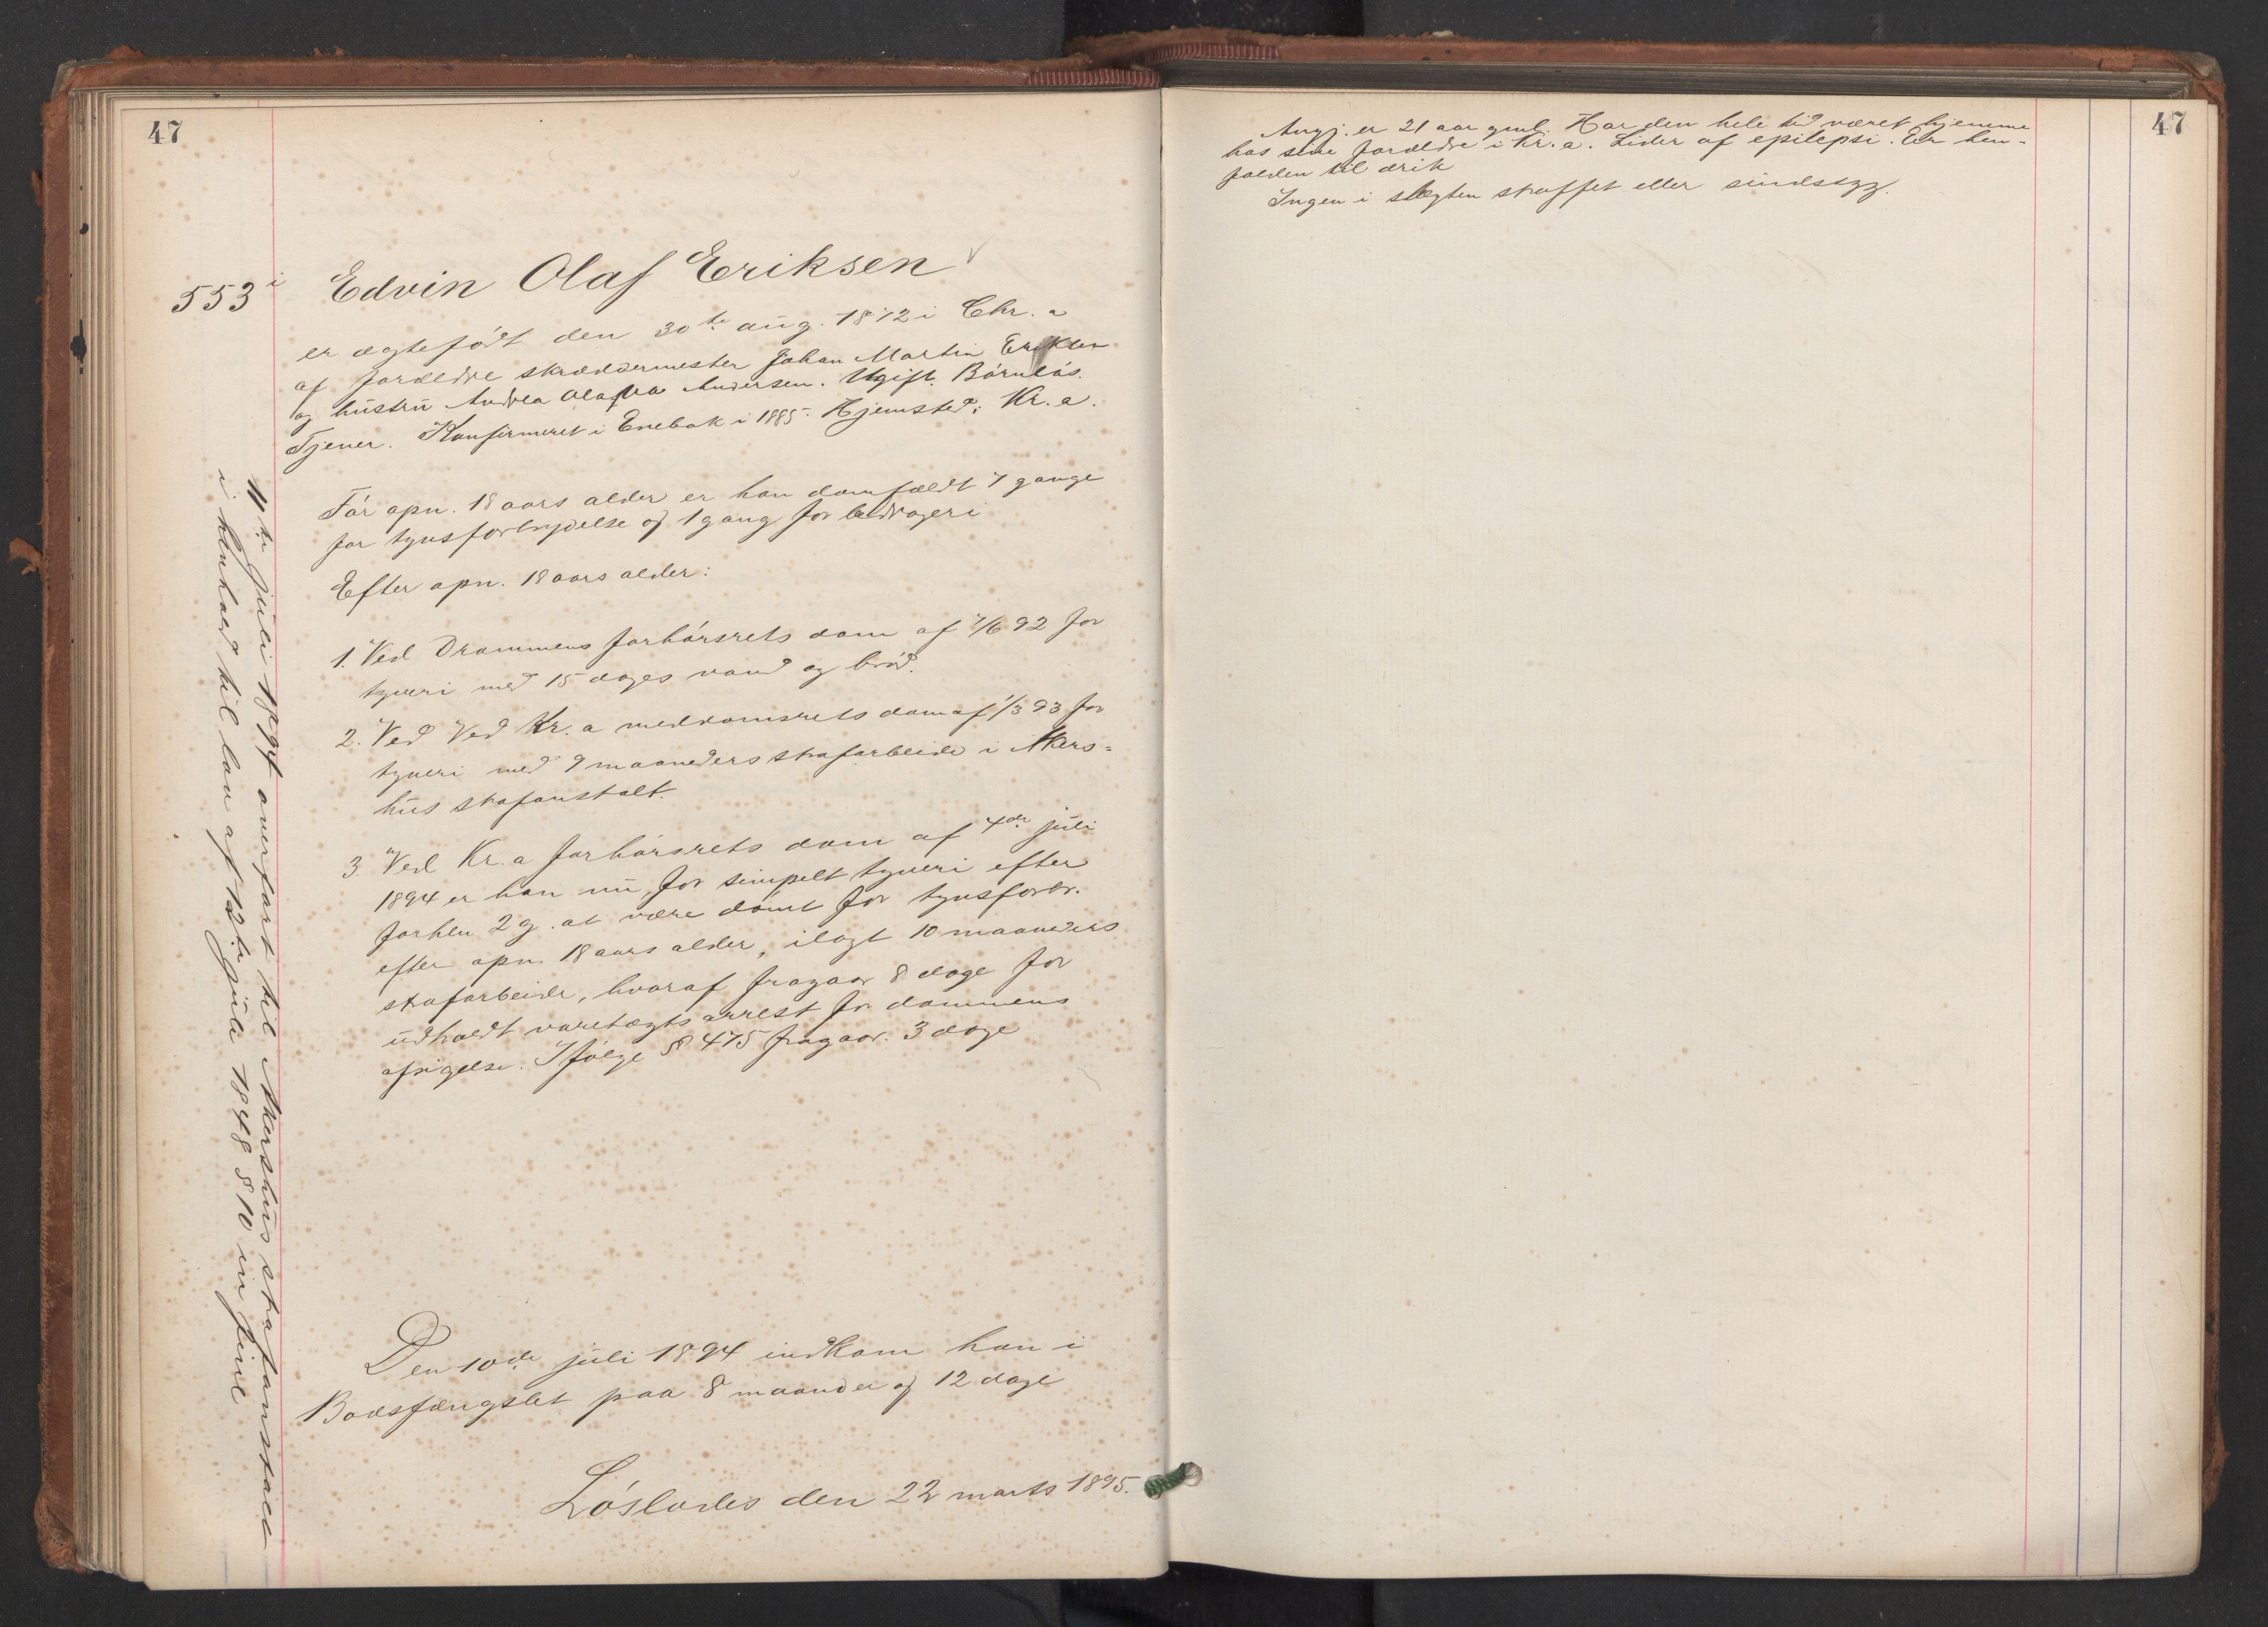 47
553 i
Edvin Olaf Eriksen
er ægtefødt den 30te aug. 1872 i Chr.a
af forældre skræddermester Johan Martin Eriksen
og hustru Andrea Olafva Andersen. Ugift. Børnløs.
Tjener. Konfirmeret i Enebak i 1885. Hjemsted: Kr.a.
Før opn. 18 aars alder er han domfældt 7 gange
for tyvsforbrydelse og 1 gang for bedrageri
Efter opn. 18 aars alder:
1. Ved Drammens forhørsrets dom af 7/6 92 for
tyveri med 15 dages vand og brød.
2. Ved Ved Kr.a meddomsrets dom af 1/3 93 for
tyveri med 9 maaneders strafarbeide i Akers=
hus strafanstalt.
3. Ved Kr.a forhørsrets dom af 4de juli
1894 er han nu, for simpelt tyveri efter
forhen 2 g. at være dømt for tyvsforbr.
efter opn. 18 aars alder, ilagt 10 maaneders
strafarbeide, hvoraf fragaar 8 dage for
udholdt varetægtsarrest før dommens
afsigelse. Ifølge § 475 fragaar 3 dage
Den 10de juli 1894 indkom han i
Bodsfængslet paa 8 maaneder og 12 dage
Løslodes den 22 marts 1895.
11te juli 1894 overført til Akershus strafanstalt
i henhold til lov af 12te juli 1848 § 10 in fine
47
Angj. er 21 aar gml. Har den hele tid været hjemme
hos sine forældre i Kr.a. Lider af epilepsi. Er hen=
falden til drik
Ingen i slegten straffet eller sindssyg.